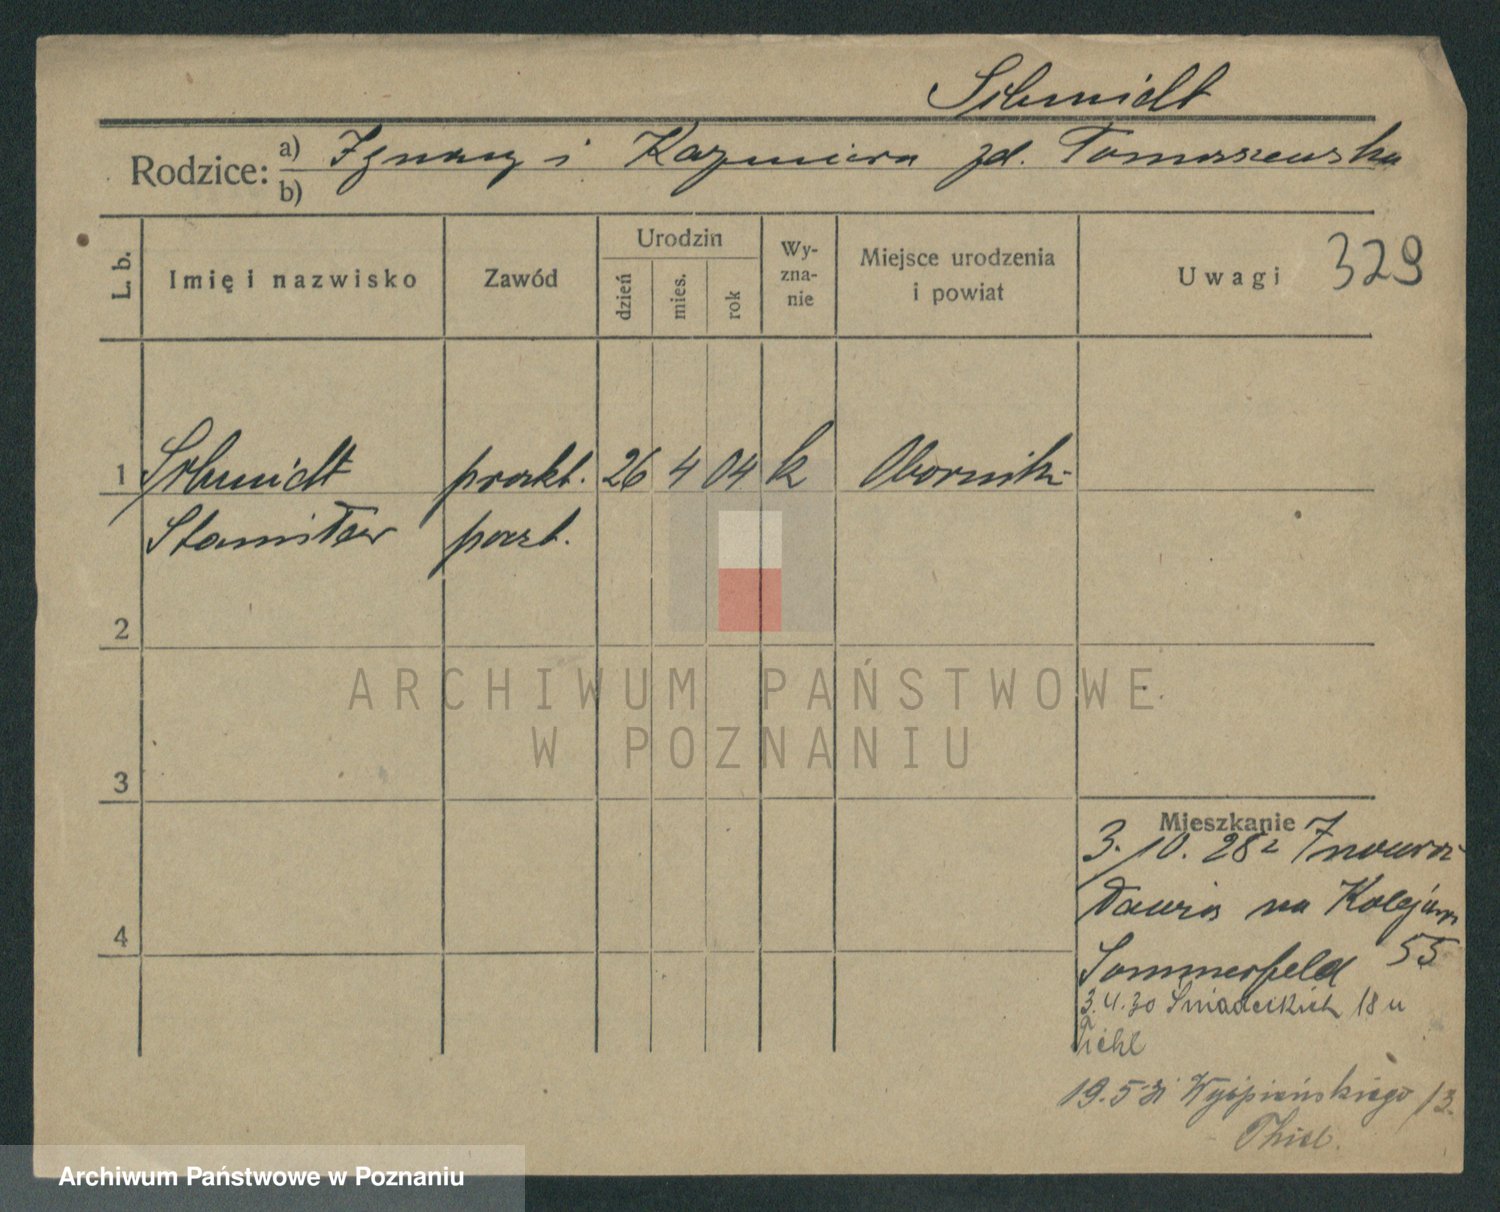 Schmidt
Rodzice: a) Ignacy i Kazimiera zd. Tomaszewska
b)
L. b. Imię i nazwisko Zawód Urodzin dzień mies. rok Wyzna-nie Miejsce urodzenia i powiat Uwagi 329
1 Schmidt prakt. 26 4 04 k Oborniki
Stanisław poczt.
2
ARCHIWUM PAŃSTWOWE
W POZNANIU
3
Mieszkanie
3. 10. 28 z
na
4
Sommerfeld 55
3.4.30 Śniadeckich 18 u
19.5.31 Wyspiańskiego 13.
Thiel.
Archiwum Państwowe w Poznaniu